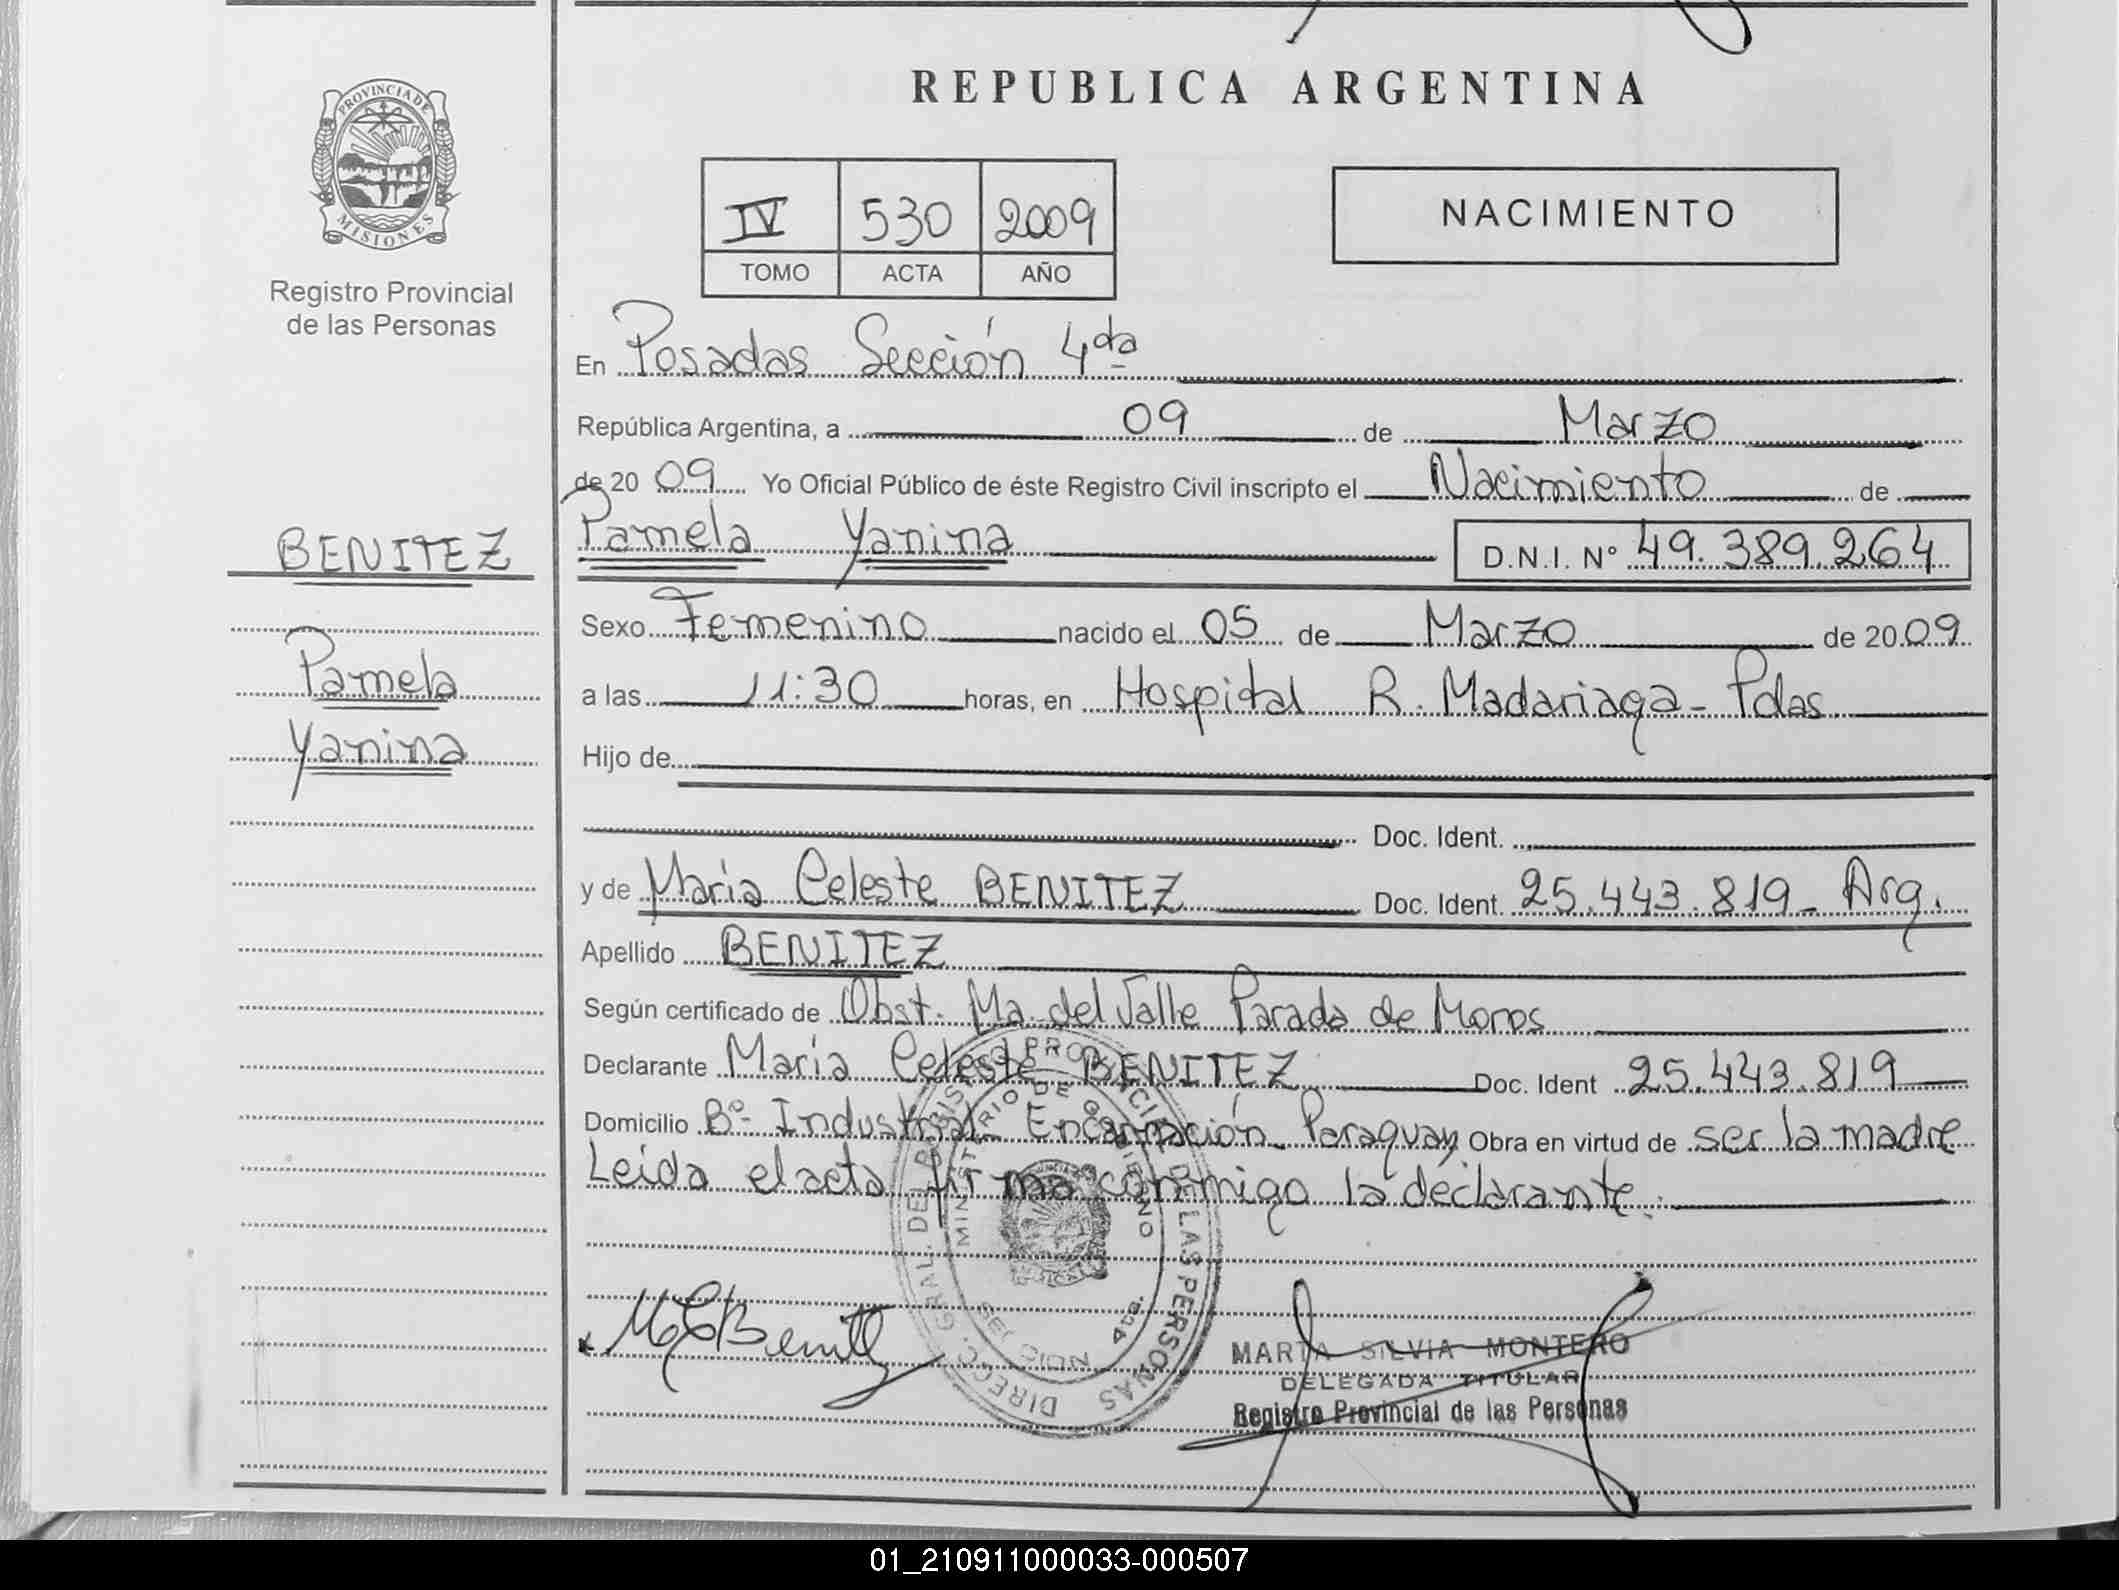 REPUBLICA ARGENTINA
PROVINCIA DE
MISIONES
Registro Provincial
de las Personas
IV 530 2009
TOMO ACTA AÑO
NACIMIENTO
En Posadas Sección 4da
República Argentina, a 09 de Marzo
de 20 09 Yo Oficial Público de éste Registro Civil inscripto el Nacimiento de
BENITEZ
Pamela Yanina D.N.I. Nº 49.389.264
Sexo Femenino nacido el 05 de Marzo de 20 09
Pamela
a las 11:30 horas, en Hospital R. Madariaga - Pdas
Yanina
Hijo de
Doc. Ident.
y de Maria Celeste BENITEZ Doc. Ident. 25.443.819 - Arg.
Apellido BENITEZ
Según certificado de Obst. Ma. del Valle Parada de Moros
Declarante Maria Celeste BENITEZ Doc. Ident 25.443.819
Domicilio Bº- Industrial - Encarnación - Paraguay Obra en virtud de ser la madre
Leida el acta firma conmigo la declarante.
DIREC. GRAL. DEL REGISTRO PROVINCIAL DE LAS PERSONAS
MINISTERIO DE GOBIERNO
4ta.
MCBenitez
MARTA SILVIA MONTERO
DELEGADA TITULAR
Registro Provincial de las Personas
01_210911000033-000507